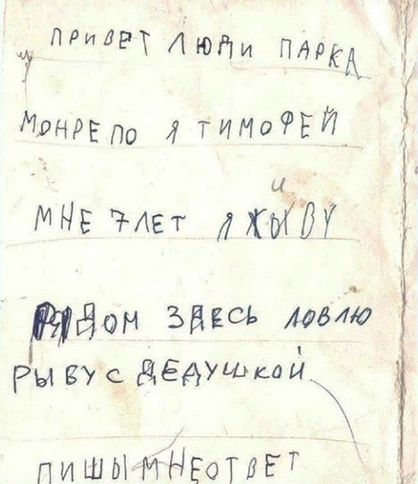 ПРИВЕТ ЛЮДИ ПАРКА
МОНРЕПО Я ТИМОФЕЙ
И
МНЕ 7 ЛЕТ Я ЖЫВУ
РЯДОМ ЗДЕСЬ ЛОВЛЮ
РЫВУ С ДЕДУШКОЙ
ПИШЫ МНЕ ОТВЕТ